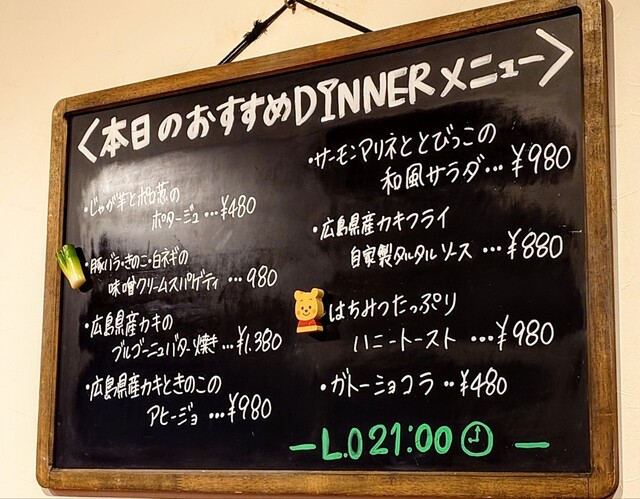 ＜本日のおすすめDINNERメニュー＞
・じゃが芋とポロ葱の
ポタージュ…¥480
・豚バラ・きのこ・白ネギの
味噌クリームスパゲティ…980
・広島県産カキの
ブルゴーニュバター焼き…¥1,380
・広島県産カキときのこの
アヒージョ…¥980
・サーモンマリネととびっこの
和風サラダ…¥980
・広島県産カキフライ
自家製タルタルソース…¥880
はちみつたっぷり
ハニートースト…¥980
・ガトーショコラ‥¥480
－L.O 21:00－